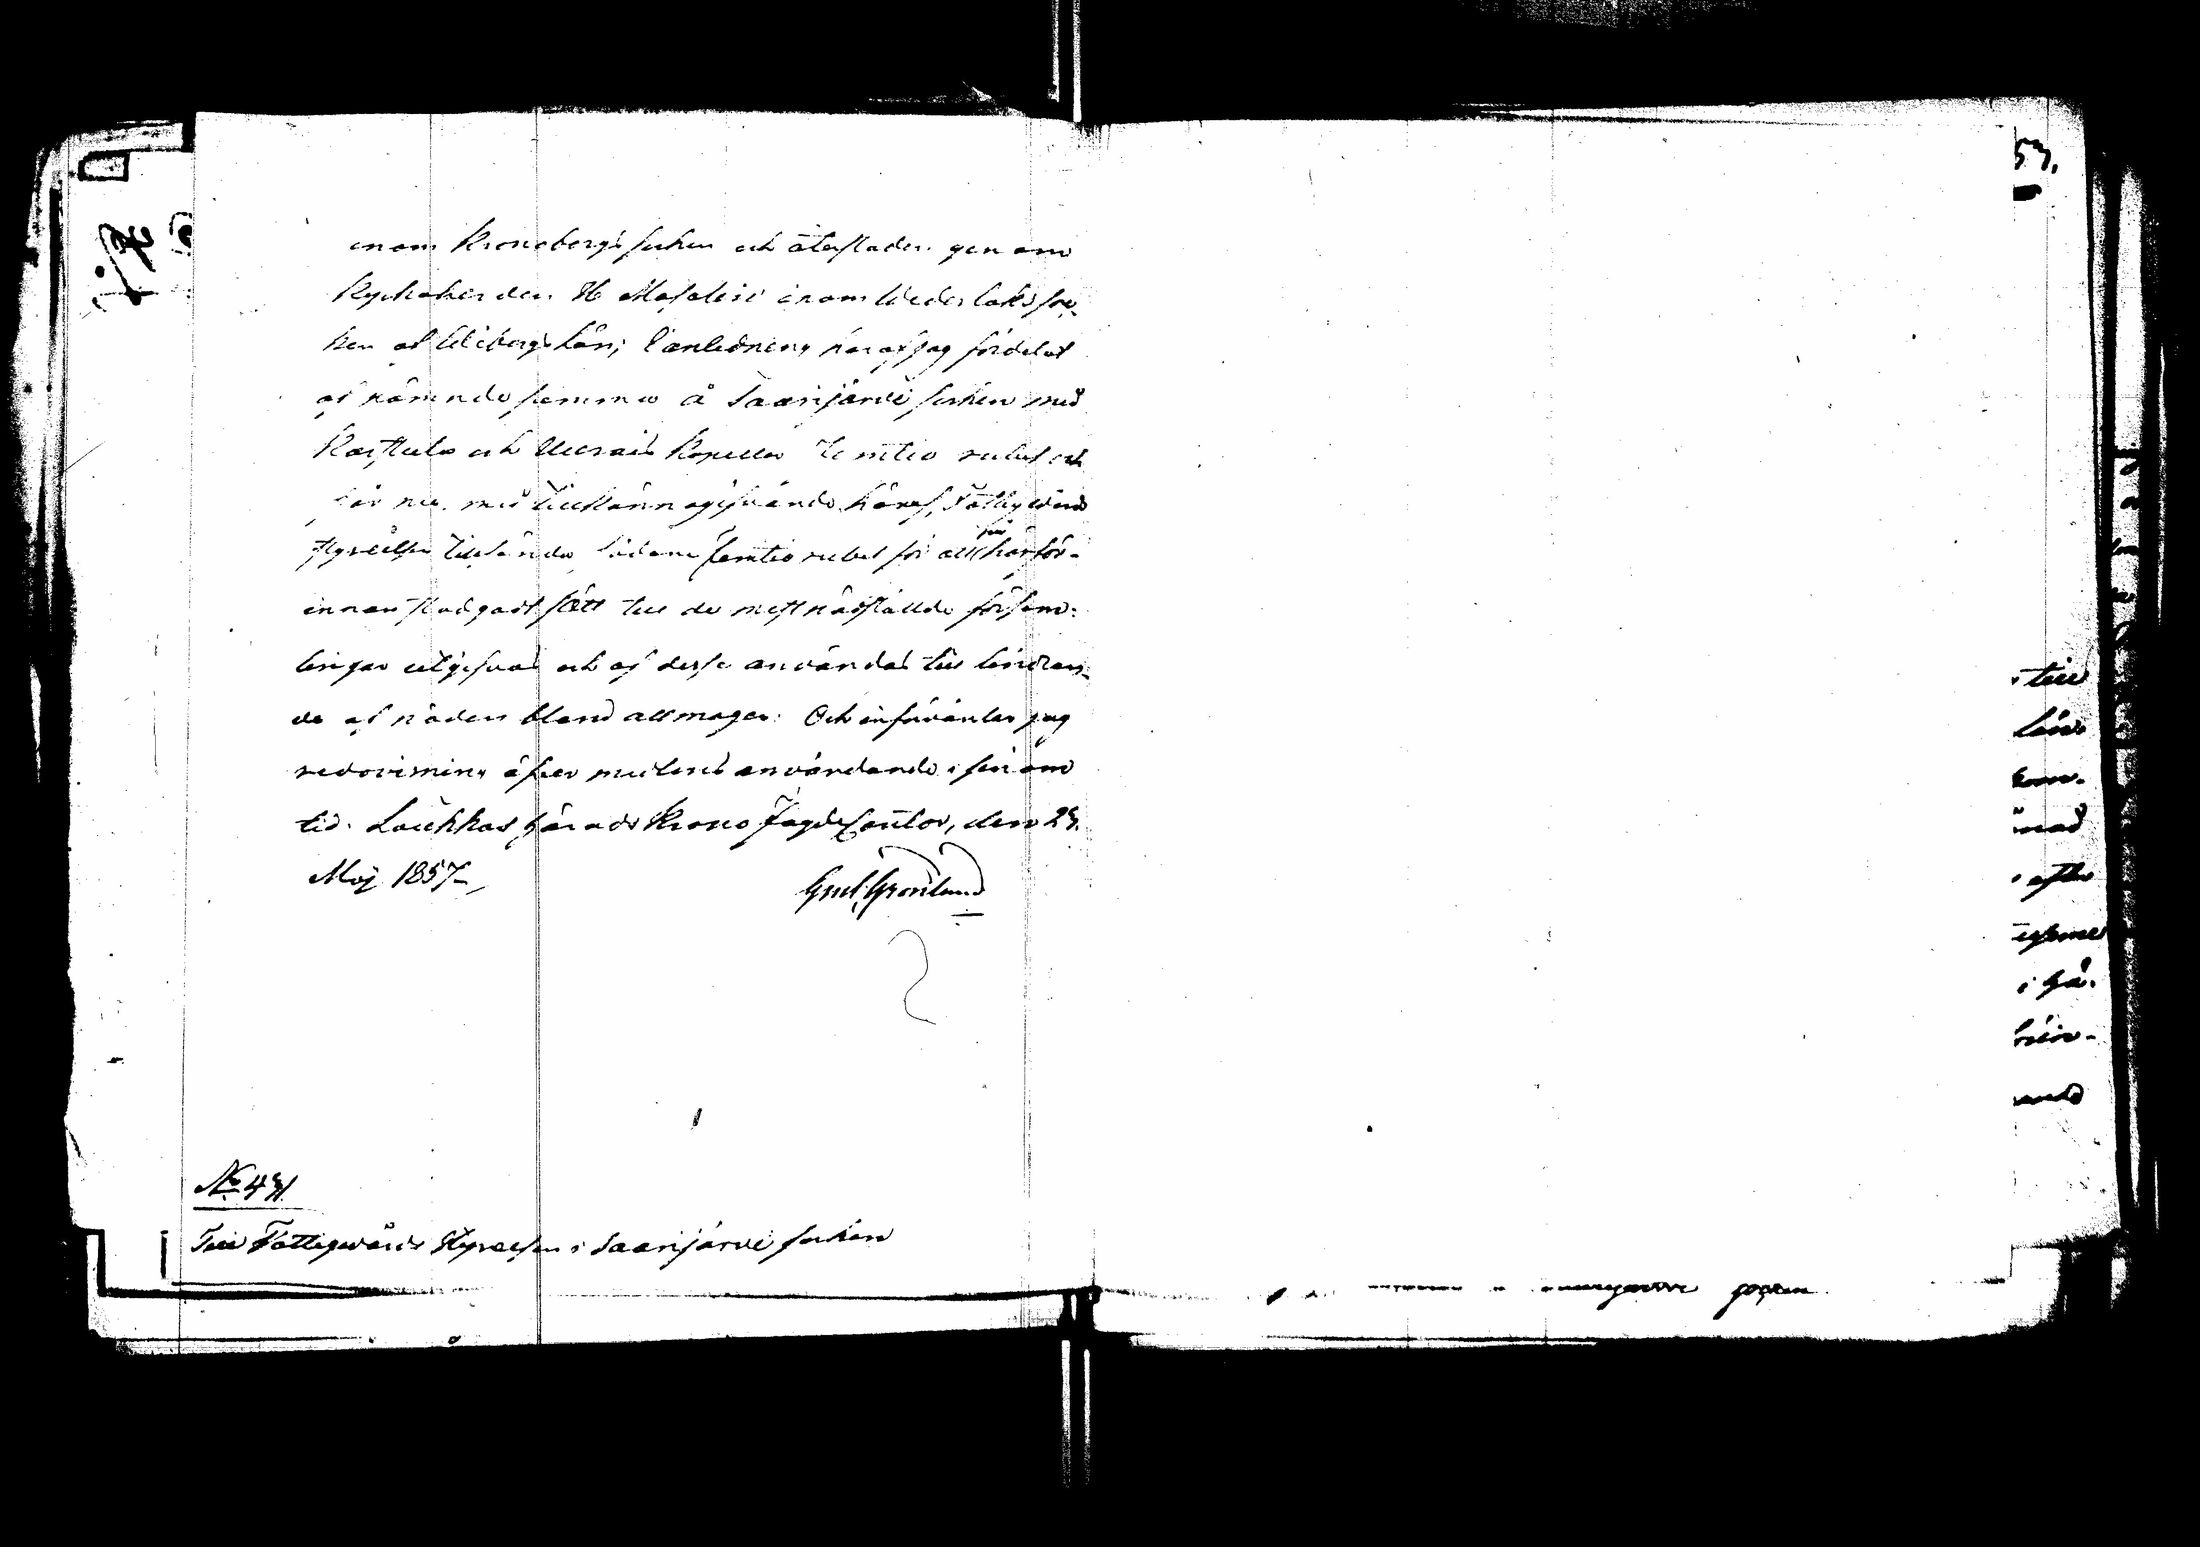 inom Kronobergs socken och återstoden genom
Kyrkoherden H Masalin inom Wederlaks soc-
ken af Wiborgs Län; i anledning hvaraf jag fördelat
af nämnde summa å Saarijärvi socken med
Karstula och Uurais Kapeller femtio rubel och
får nu, med tillkännagifvande häraf, Fattigvårds
styrelsen tillsända sådane femtio rubel för att här för-
innan stadgadt sätt till de mest nödstälde försam-
lingar utgifvas och af desse användas till lindran-
de af nöden bland allmogen: Och införväntar jag
redovisning öfver medlens användande i sinom
tid. Laukkas Härads Krono Fogde Contor, den 29.
Maj 1857.
Gust. Grönlund
No 431.
Till Fattigvårds Styrelsen i Saarijärvi socken
53.
till
län
kom-
efter
i Hä-